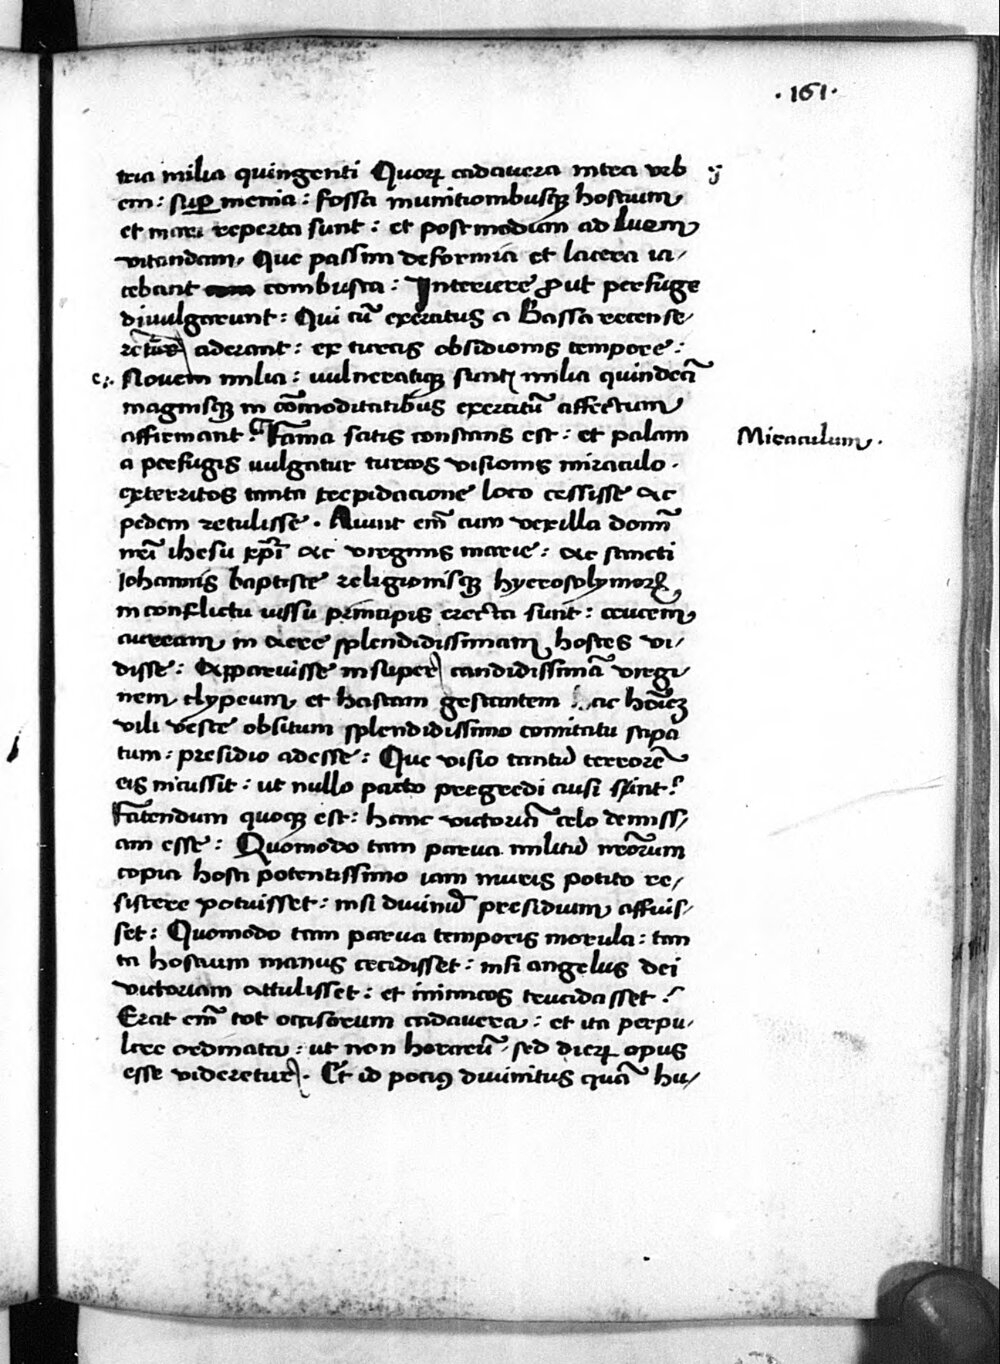 ·161·
tria milia quingenti Quoꝝ cadauera intra vrb
em: sup̲ menia: fossa munitionibusqꝫ hostium
et mari reperta sunt: et postmodum ad luem
vitandam, Que passim deformia et lacera ia/
cebant combusta: Interiere ꝓut perfuge
diuulgarunt: Qui cū exercitus a Bassa recense/
retur aderant: ex turcis obsidionis tempore:
Nouem milia: uulneratiqꝫ sunt milia quindecī
magnisqꝫ in cōmoditatibus exercitū affectum
affirmant: Fama satis constans est: et palam
Miraculum.
a perfugis uulgatur turcos visionis miraculo.
exterritos tanta trepidacione loco cessisse ac
pedem retulisse. Aiunt em̄ cum vexilla domī
nrī ihesu xp̄i ac virginis marie: ac sancti
Iohannis baptiste religionisqꝫ hyerosolymoꝝ
in conflictu iussu principis erecta sunt: crucem
auream in aere splendidissimam hostes vi/
disse: Apparuisse insuper candidissimā virgi/
nem clypeum et hastam gestantem ac hoīeꝫ
vili veste obsitum splendidissimo comitatu stipa
tum: presidio adesse: Que visio tantū terrorē
eis incussit: ut nullo pacto progredi ausi sint:
Fatendum quoqꝫ est: hanc victoriā celo demiss/
am esse: Quomodo tam parua militū nr̄orum
copia hosti potentissimo iam muris potito re/
sistere potuisset: nisi diuinū presidium affuis/
set: Quomodo tam parua temporis morula: tan
ta hostium manus cecidisset: nisi angelus dei
victoriam attulisset: et inimicos trucidasset:
Erat em̄ tot occisorum cadauera: et ita perpu/
lcre ordinata: ut non horarū sed dieꝝ opus
esse videretur. Et id pocius diuinitus quā hu/